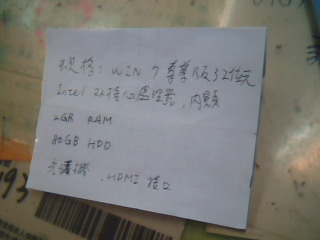 規格: WIN 7 專業版32位元
Intel 2核心處理器,內顯
2GB RAM
80GB HDD
光碟機, HDMI 接口
93